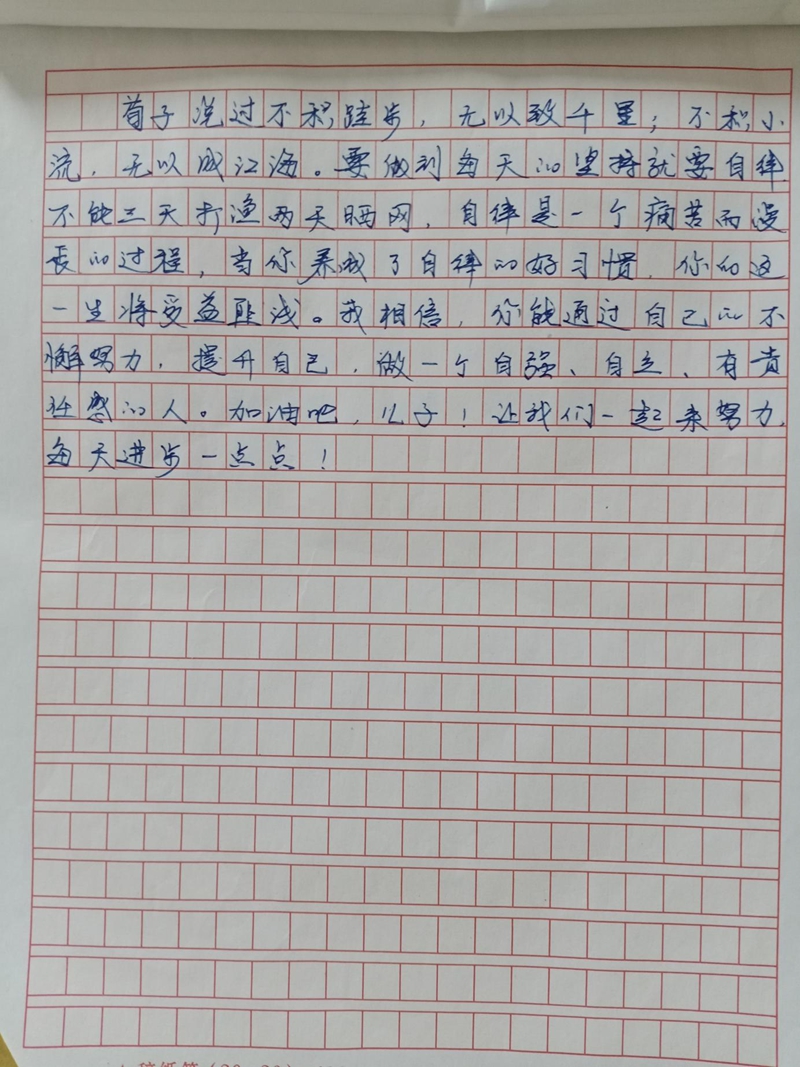 荀子说过不积跬步，无以致千里；不积小
流，无以成江海。要做到每天的坚持就要自律
不能三天打渔两天晒网，自律是一个痛苦而漫
长的过程，当你养成了自律的好习惯，你的这
一生将受益匪浅。我相信，你能通过自己的不
懈努力，提升自己，做一个自强、自立、有责
任感的人。加油吧，儿子！让我们一起来努力，
每天进步一点点！